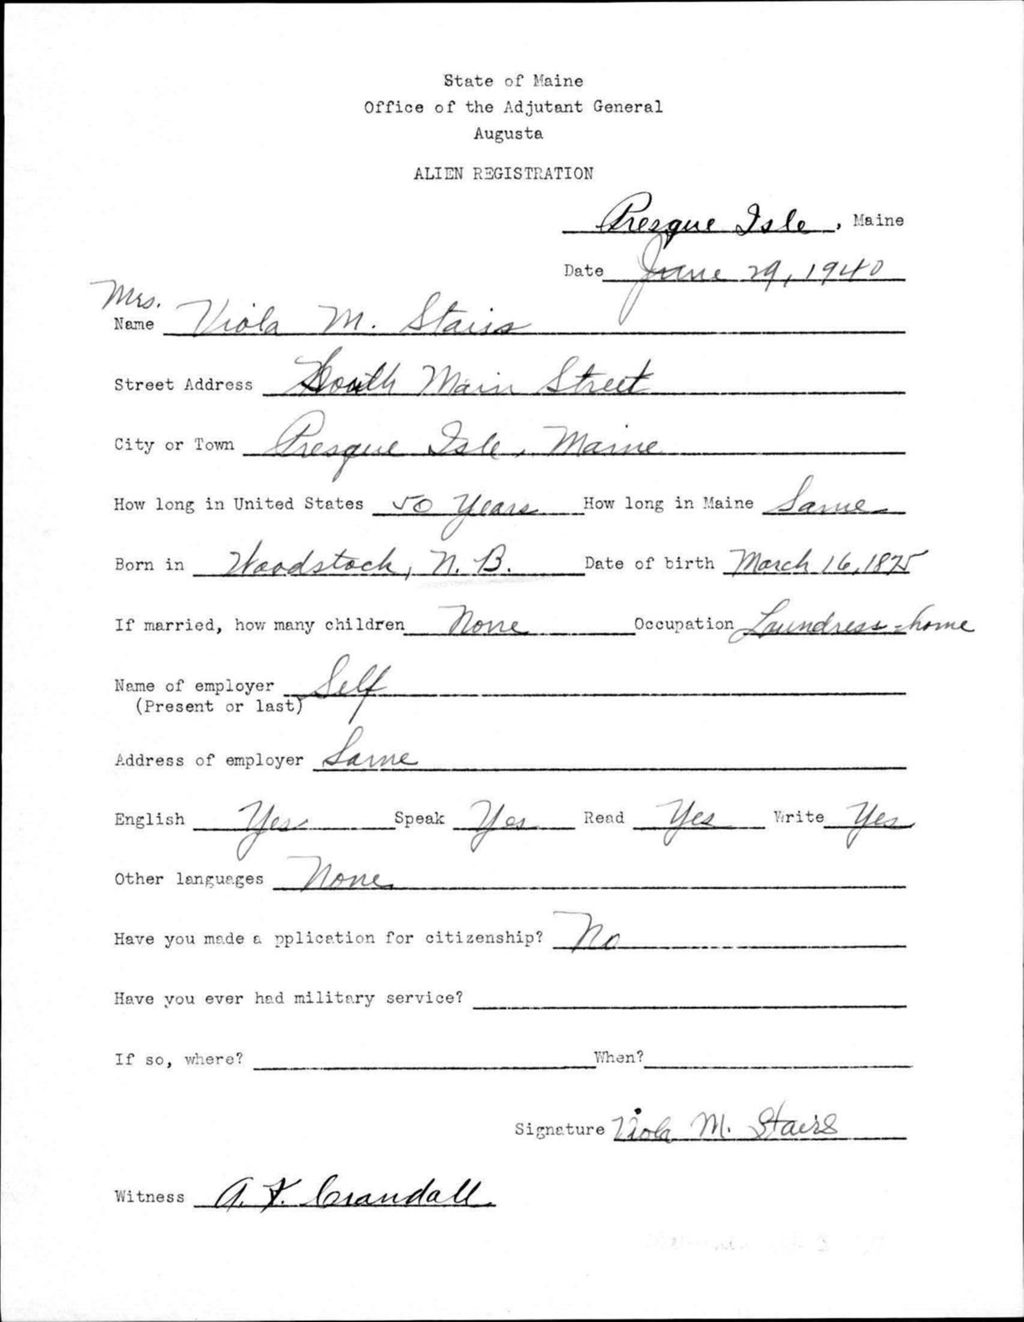 State of Maine
Office of the Adjutant General
Augusta
ALIEN REGISTRATION
Presque Isle, Maine
Date June 29, 1940
Mrs.
Name Viola M. Stairs
Street Address South Main Street
City or Town Presque Isle, Maine
How long in United States 50 Years How long in Maine Same
Born in Woodstock, N.B. Date of birth March 16, 1875
If married, how many children None Occupation Laundress-home
Name of employer Self
(Present or last)
Address of employer Same
English Yes Speak Yes Read Yes Write Yes
Other languages None
Have you made a pplication for citizenship? No
Have you ever had military service?
If so, where? When?
Signature Viola M. Stairs
Witness A. F. Crandall